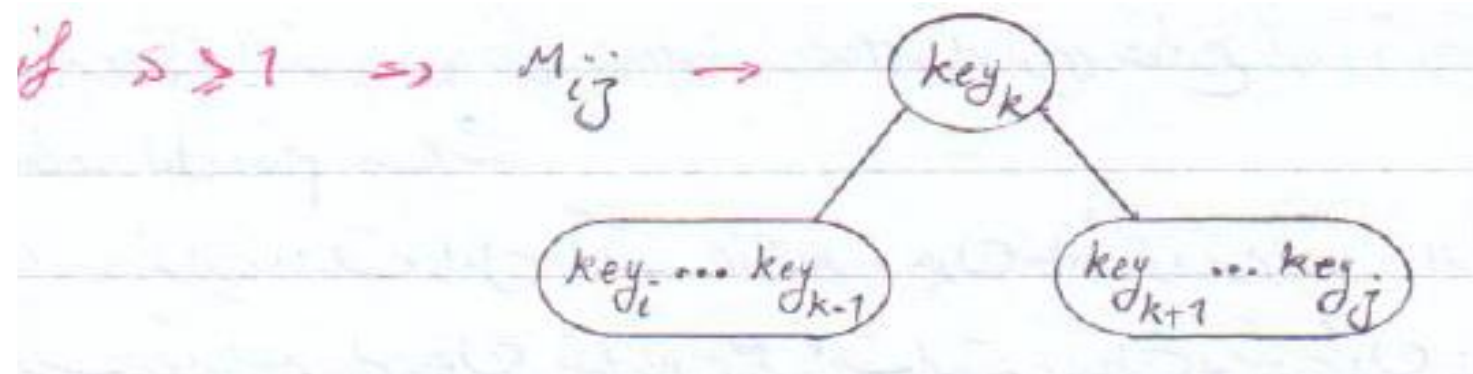 if s ≥ 1 ⇒ M_ij → key_k
key_i ... key_k-1 key_k+1 ... key_j